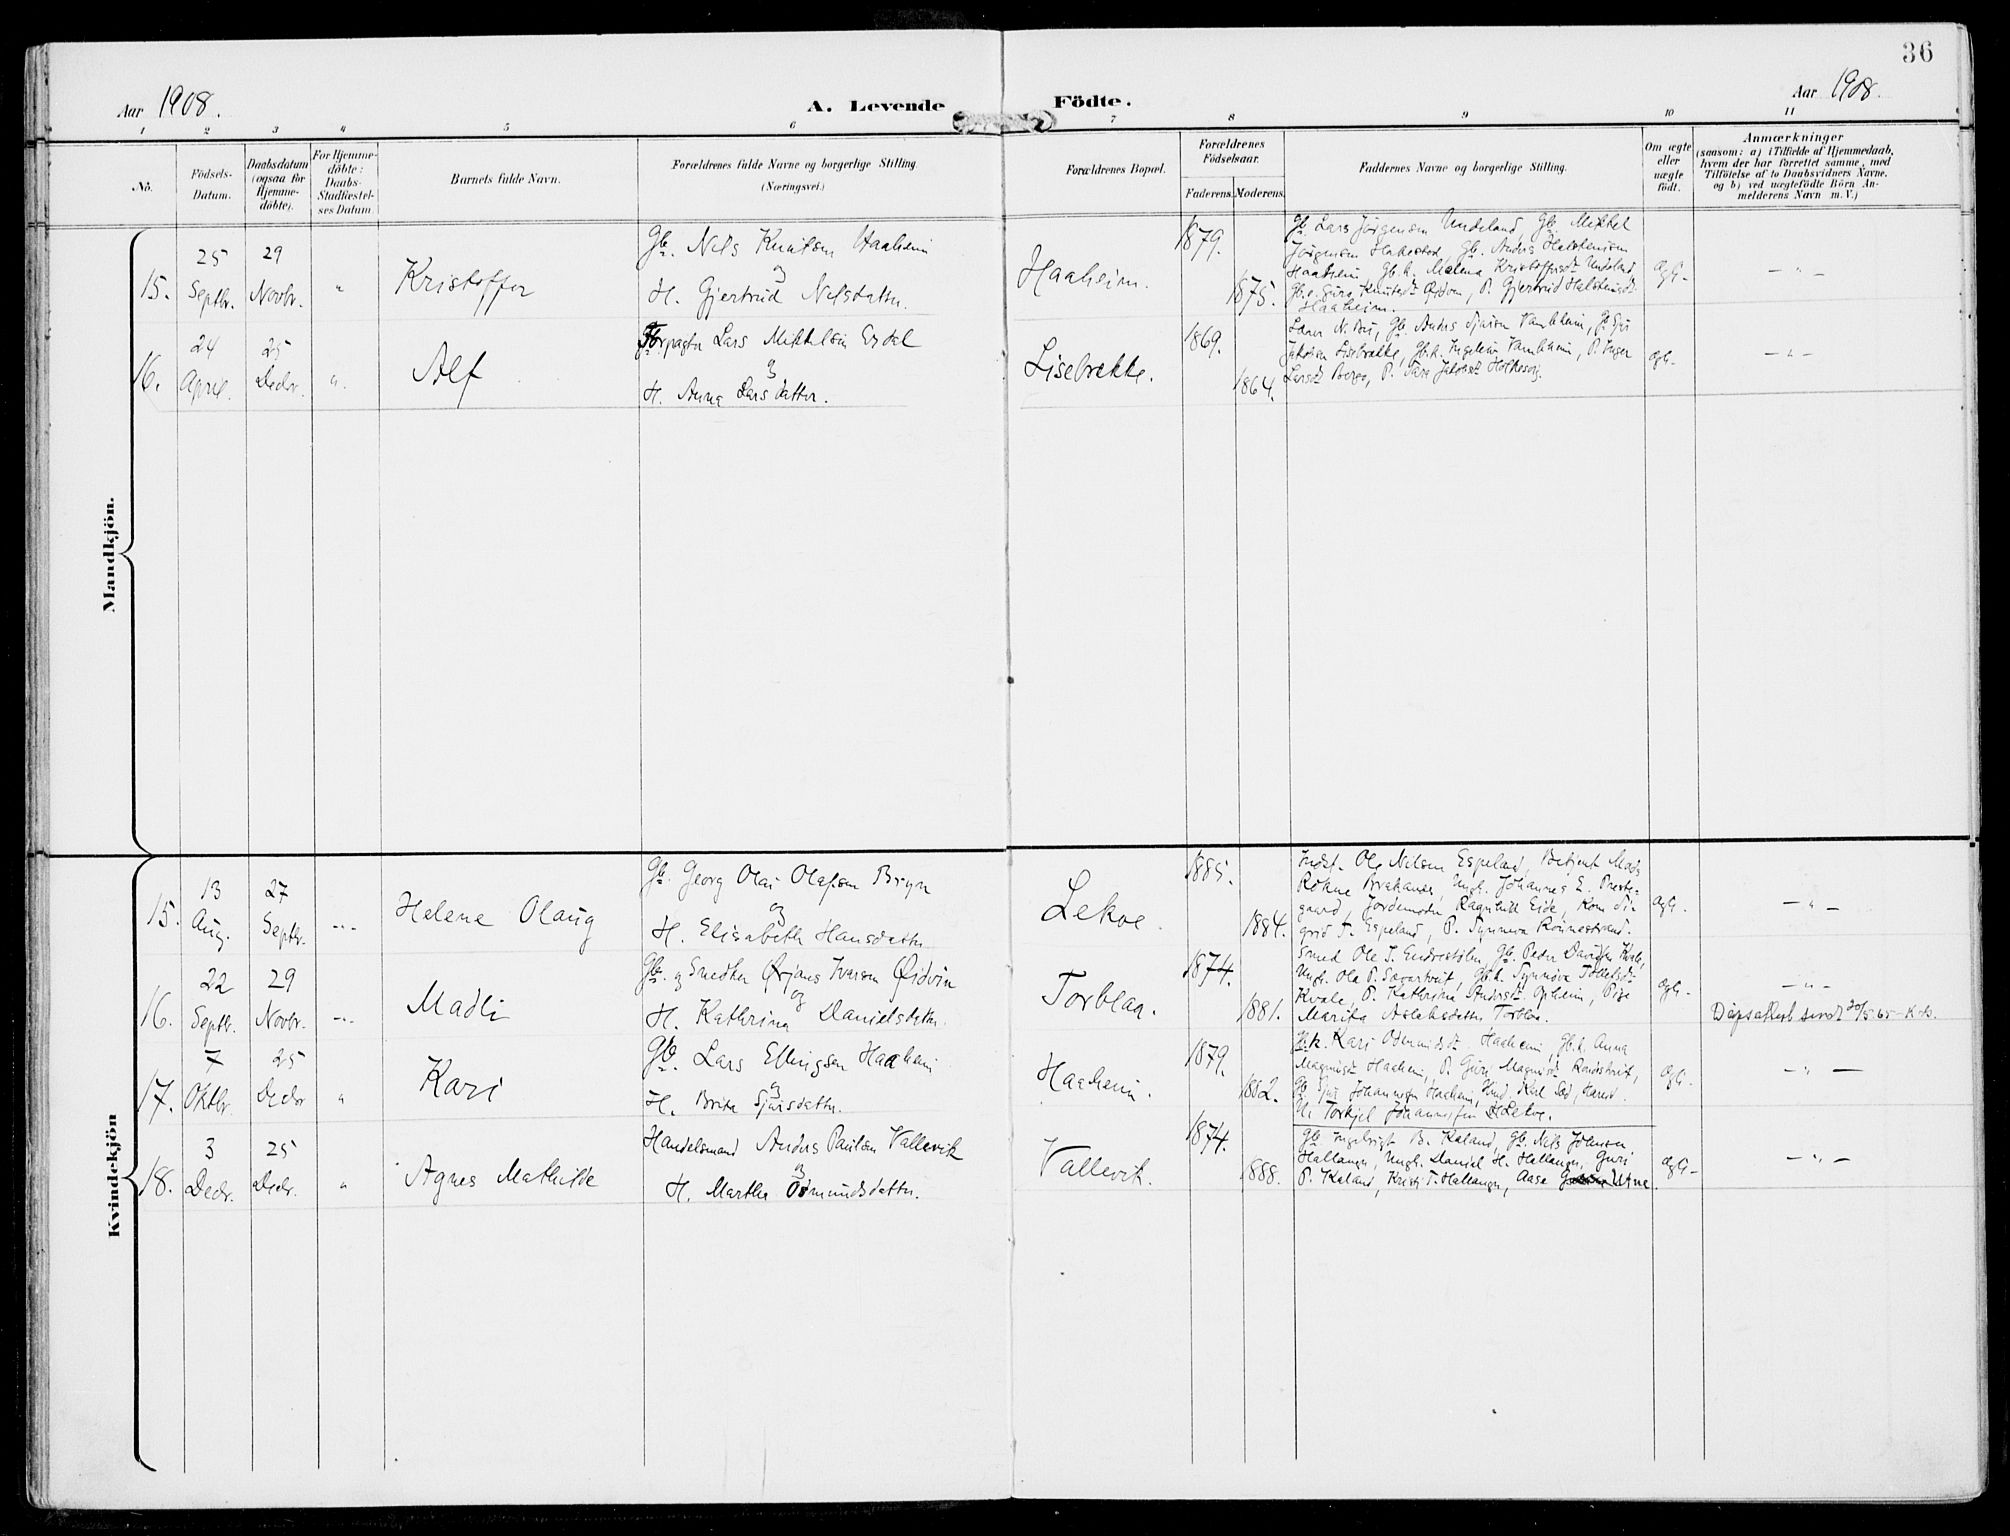 36
Aar 1908.
A. Levende Födte.
Aar 1908.
1 2 3 4 5 6 7 8 9 10 11
No.
Födsels-Datum.
Daabsdatum (ogsaa for Hjemme-döbte).
For Hjemme-döbte: Daabs-Stadfæstel-ses Datum
Barnets fulde Navn.
Forældrenes fulde Navne og borgerlige Stilling.
(Næringsvei.)
Forældrenes Bopæl.
Forældrenes Födselsaar.
Faderens. Moderens.
Faddernes Navne og borgerlige Stilling.
Om ægte eller uægte født.
Anmærkninger
(saasom: a) i Tilfælde af Hjemmedaab,
hvem der har forrettet samme, med
Tilföielse af to Daabsvidners Navne.
og b) ved uægtefödte Börn An-
melderens Navn m. V.)
Mandkjön.
15.
25 Septbr.
29 Novbr.
"
Kristoffer
Gb. Nils Knutsen Haaheim
og
H. Gjertrud Nilsdatter.
Haaheim.
1879.
1875.
Gb. Lars Jørgensen Undeland, Gb. Mikkel
Jørgensen Hakestad, Gb. Anders Halstensen
Haaheim, Gb.k. Malena Kristoffersdt. Undeland,
Gb.e. Guro Knutsdt. , P. Gjertrud Halstensdt.
Haaheim.
ægte.
— " —
16.
24 April.
25 Decbr.
"
Alf
Forpagter Lars Mikkelsen Erdal
og
H. Anna Larsdatter.
Lisebrekke.
1869.
1864.
Lærer N. Bu, Gb. Anders Sjursen , Gb.
Jakobsen Lisebrekke, Gb.k. Ingeleiv , P. Inger
Larsdt. Berge, P. Sara Jakobsdt.
ægte.
— " —
Kvindekjön
15.
13 Aug.
27 Septbr.
- " -
Helene Olaug
Gb. Georg Olai Olafsen Bryn
og
H. Elisabeth Hansdatter
Lekve.
1885.
1884.
Indst. Ole Nilsen Espeland, Betjent Mads
Røhne Brakanes, Ungk. Johannes E. Preste-
gaard, Jordemoder Ragnhild Eide, Kone Si-
grid T. Espeland, P. Synneva Rønnestrand.
ægte.
— " —
16.
22 Septbr.
29 Novbr.
- " -
Madli
Gb. og Smedker Ørjans Iversen Øidvin
og
H. Kathrina Danielsdatter.
Torblaa.
1874.
1881.
Smed Ole S. Endrestølen, Gb. Peder Davidsen Kvale,
Ungk. Ola P. Skaartveit, Gb.k. Synneva Tollefsdt.
Kvale, P. Kathrina Andersdt. Opheim, Pige
Marita Aslaksdatter Torblaa.
ægte.
— " —
Dåpsattest sendt 20/5-65 - K.B.
17.
7 Oktbr.
25 Decbr
"
Kari
Gb. Lars Ellingsen Haaheim
og
H. Brita Sjursdatter.
Haaheim.
1879.
1882.
Gb.k. Kari Odmundsdt. Haaheim, Gb.k. Anna
Magnusdt. Haaheim, P. Guri Magnusdt.
Gb. Sjur Johannesen Haaheim,
U. Torkjel Johannessen Lekve.
ægte.
— " —
18.
3 Decbr.
25 Decbr.
"
Agnes Mathilde
Handelsmand Anders Paulsen Vallevik
og
H. Martha Osmundsdatter.
Vallevik.
1874.
1888.
Gb. Ingebrigt B. Kaland, Gb. Nils Johnsen
Hallanger, Ungk. Daniel H. Hallanger, Guri
P. Kaland, Kristi T. Hallanger, Aase Utne
ægte
— " —